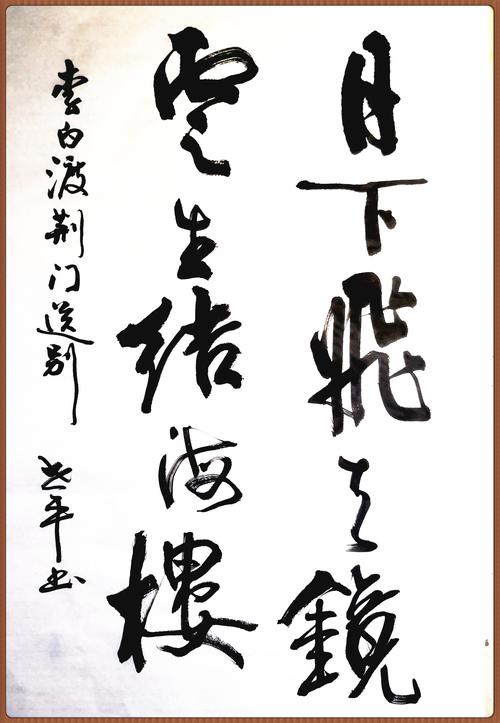 月下飛天鏡
雲生结海樓
李白渡荆门送别 平书